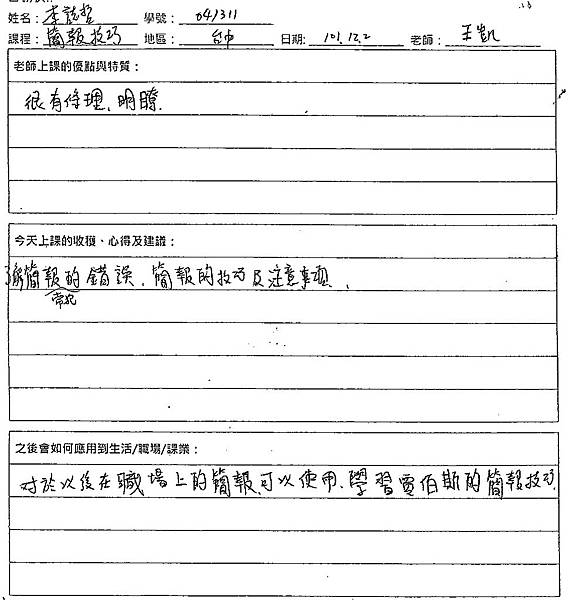 姓名：李 哲 學號：041311
課程：簡報技巧 地區：台中 日期：101.12.2 老師：王凱
老師上課的優點與特質：
很有條理、明瞭.
今天上課的收穫、心得及建議：
了解簡報的錯誤、簡報的技巧及注意事項.
常犯
之後會如何應用到生活/職場/課業：
對於以後在職場上的簡報,可以使用、學習賈伯斯的簡報技巧.